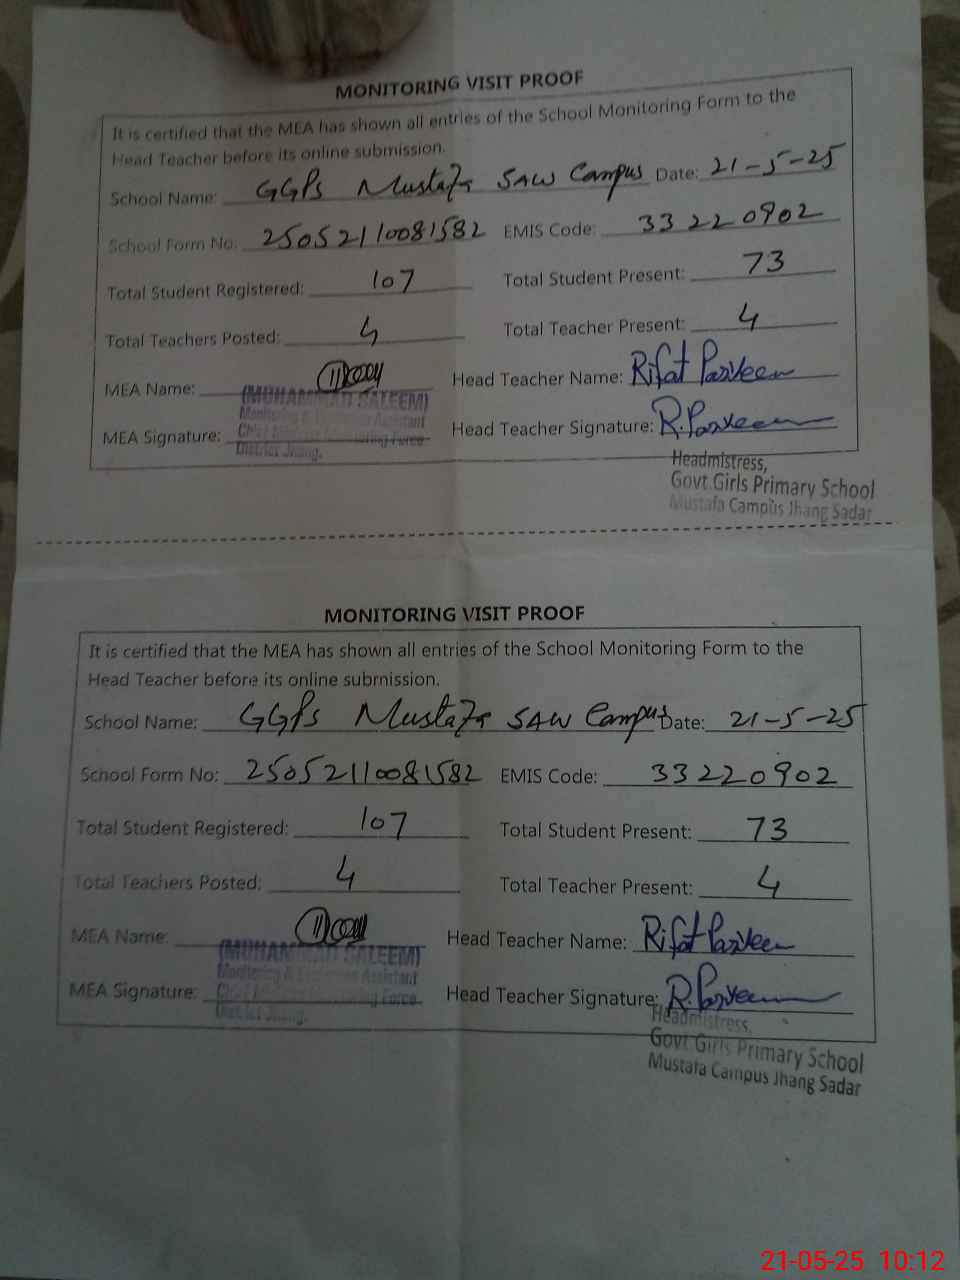 MONITORING VISIT PROOF
It is certified that the MEA has shown all entries of the School Monitoring Form to the
Head Teacher before its online submission.
School Name: GGPS Mustafa SAW Campus Date: 21-5-25
School Form No: 25052110081582 EMIS Code: 33220902
Total Student Registered: 107 Total Student Present: 73
Total Teachers Posted: 4 Total Teacher Present: 4
MEA Name: Head Teacher Name: Rifat Parveen
(MUHAMMAD SALEEM)
Monitoring & Evaluation Assistant
MEA Signature: Head Teacher Signature: R.Parveen
Chief Minister Monitoring Force
District Jhang.
Headmistress,
Govt.Girls Primary School
Mustafa Campus Jhang Sadar
MONITORING VISIT PROOF
It is certified that the MEA has shown all entries of the School Monitoring Form to the
Head Teacher before its online submission.
School Name: GGPS Mustafa SAW Campus Date: 21-5-25
School Form No: 25052110081582 EMIS Code: 33220902
Total Student Registered: 107 Total Student Present: 73
Total Teachers Posted: 4 Total Teacher Present: 4
MEA Name: Head Teacher Name: Rifat Parveen
(MUHAMMAD SALEEM)
Monitoring & Evaluation Assistant
MEA Signature: Head Teacher Signature: R.Parveen
Chief Minister Monitoring Force
District Jhang.
Headmistress,
Govt.Girls Primary School
Mustafa Campus Jhang Sadar
21-05-25 10:12